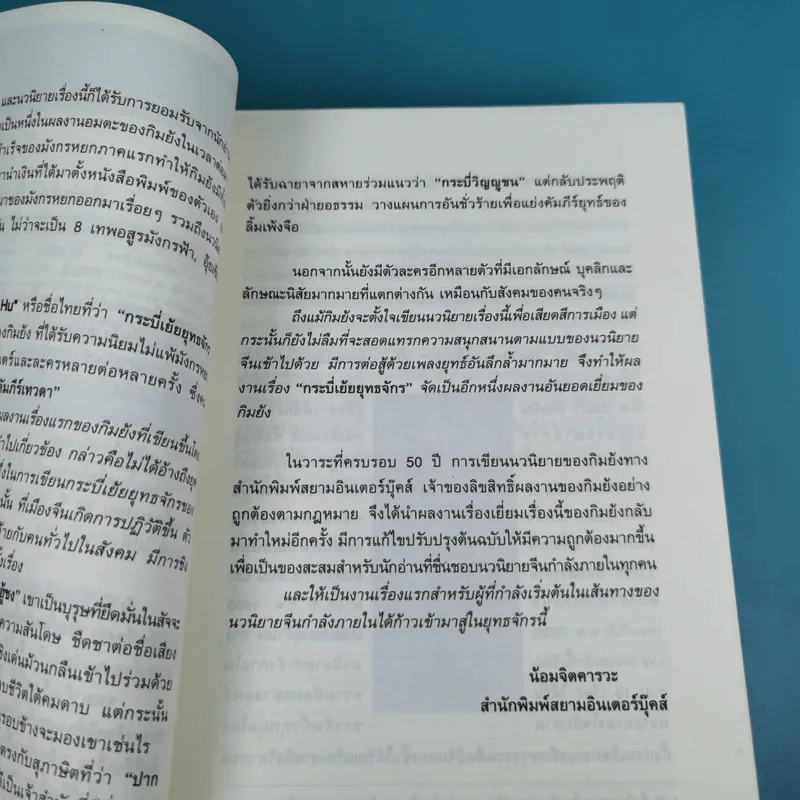 และนวนิยายเรื่องนี้ก็ได้รับการยอมรับจากนักอ่าน
เป็นหนึ่งในผลงานอมตะของกิมย้งในเวลาต่อมา
สำเร็จของมังกรหยกภาคแรกทำให้กิมย้งมี
นำเงินที่ได้มาตั้งหนังสือพิมพ์ของตัวเอง
มาของมังกรหยกออกมาเรื่อยๆ รวมถึง
ไม่ว่าจะเป็น 8 เทพอสูรมังกรฟ้า,
Hu" หรือชื่อไทยที่ว่า "กระบี่เย้ยยุทธจักร
องกิมย้ง ที่ได้รับความนิยมไม่แพ้มังกรหยก
ตร์และละครหลายต่อหลายครั้ง ซึ่ง
คัมภีร์เทวดา"
ผลงานเรื่องแรกของกิมย้งที่เขียนขึ้นโดย
เข้าไปเกี่ยวข้อง กล่าวคือไม่ได้อ้างถึงยุค
ในการเขียนกระบี่เย้ยยุทธจักรของ
นั้น ที่เมืองจีนเกิดการปฏิวัติขึ้น ตัว
ายกับคนทั่วไปในสังคม มีการชิง
เรื่อง
เขาเป็นบุรุษที่ยึดมั่นในสัจจะ
ความสันโดษ ชืดชาต่อชื่อเสียง
เด่นม้วนกลืนเข้าไปร่วมด้วย
บชีวิตใต้คมดาบ แต่กระนั้น
รอบข้างจะมองเขาเช่นไร
ตรงกับสุภาษิตที่ว่า "ปาก
ได้รับฉายาจากสหายร่วมแนวว่า "กระบี่วิญญูชน" แต่กลับประพฤติ
ตัวยิ่งกว่าฝ่ายอธรรม วางแผนการอันชั่วร้ายเพื่อแย่งคัมภีร์ยุทธ์ของ
ลิ้มเพ้งจือ
นอกจากนั้นยังมีตัวละครอีกหลายตัวที่มีเอกลักษณ์ บุคลิกและ
ลักษณะนิสัยมากมายที่แตกต่างกัน เหมือนกับสังคมของคนจริงๆ
ถึงแม้กิมย้งจะตั้งใจเขียนนวนิยายเรื่องนี้เพื่อเสียดสีการเมือง แต่
กระนั้นก็ยังไม่ลืมที่จะสอดแทรกความสนุกสนานตามแบบของนวนิยาย
จีนเข้าไปด้วย มีการต่อสู้ด้วยเพลงยุทธ์อันลึกล้ำมากมาย จึงทำให้ผล
งานเรื่อง "กระบี่เย้ยยุทธจักร" จัดเป็นอีกหนึ่งผลงานอันยอดเยี่ยมของ
กิมย้ง
ในวาระที่ครบรอบ 50 ปี การเขียนนวนิยายของกิมย้งทาง
สำนักพิมพ์สยามอินเตอร์บุ๊คส์ เจ้าของลิขสิทธิ์ผลงานของกิมย้งอย่าง
ถูกต้องตามกฎหมาย จึงได้นำผลงานเรื่องเยี่ยมเรื่องนี้ของกิมย้งกลับ
มาทำใหม่อีกครั้ง มีการแก้ไขปรับปรุงต้นฉบับให้มีความถูกต้องมากขึ้น
เพื่อเป็นของสะสมสำหรับนักอ่านที่ชื่นชอบนวนิยายจีนกำลังภายในทุกคน
และให้เป็นงานเรื่องแรกสำหรับผู้ที่กำลังเริ่มต้นในเส้นทางของ
นวนิยายจีนกำลังภายในได้ก้าวเข้ามาสู่ในยุทธจักรนี้
น้อมจิตคารวะ
สำนักพิมพ์สยามอินเตอร์บุ๊คส์